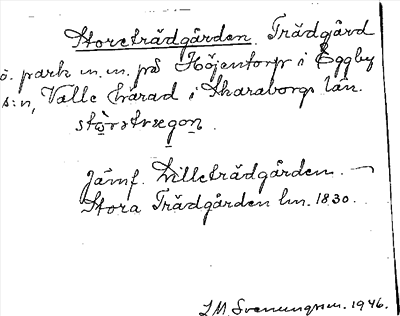 Storeträdgården. Trädgård
o. park m.m. på Höjentorp i Eggby
s:n, Valle härad i Skaraborgs län.
stòrətrægon.
Jämf. Lilleträdgården. —
Stora Trädgården lm. 1830.
L M. Svenungsson. 1946.